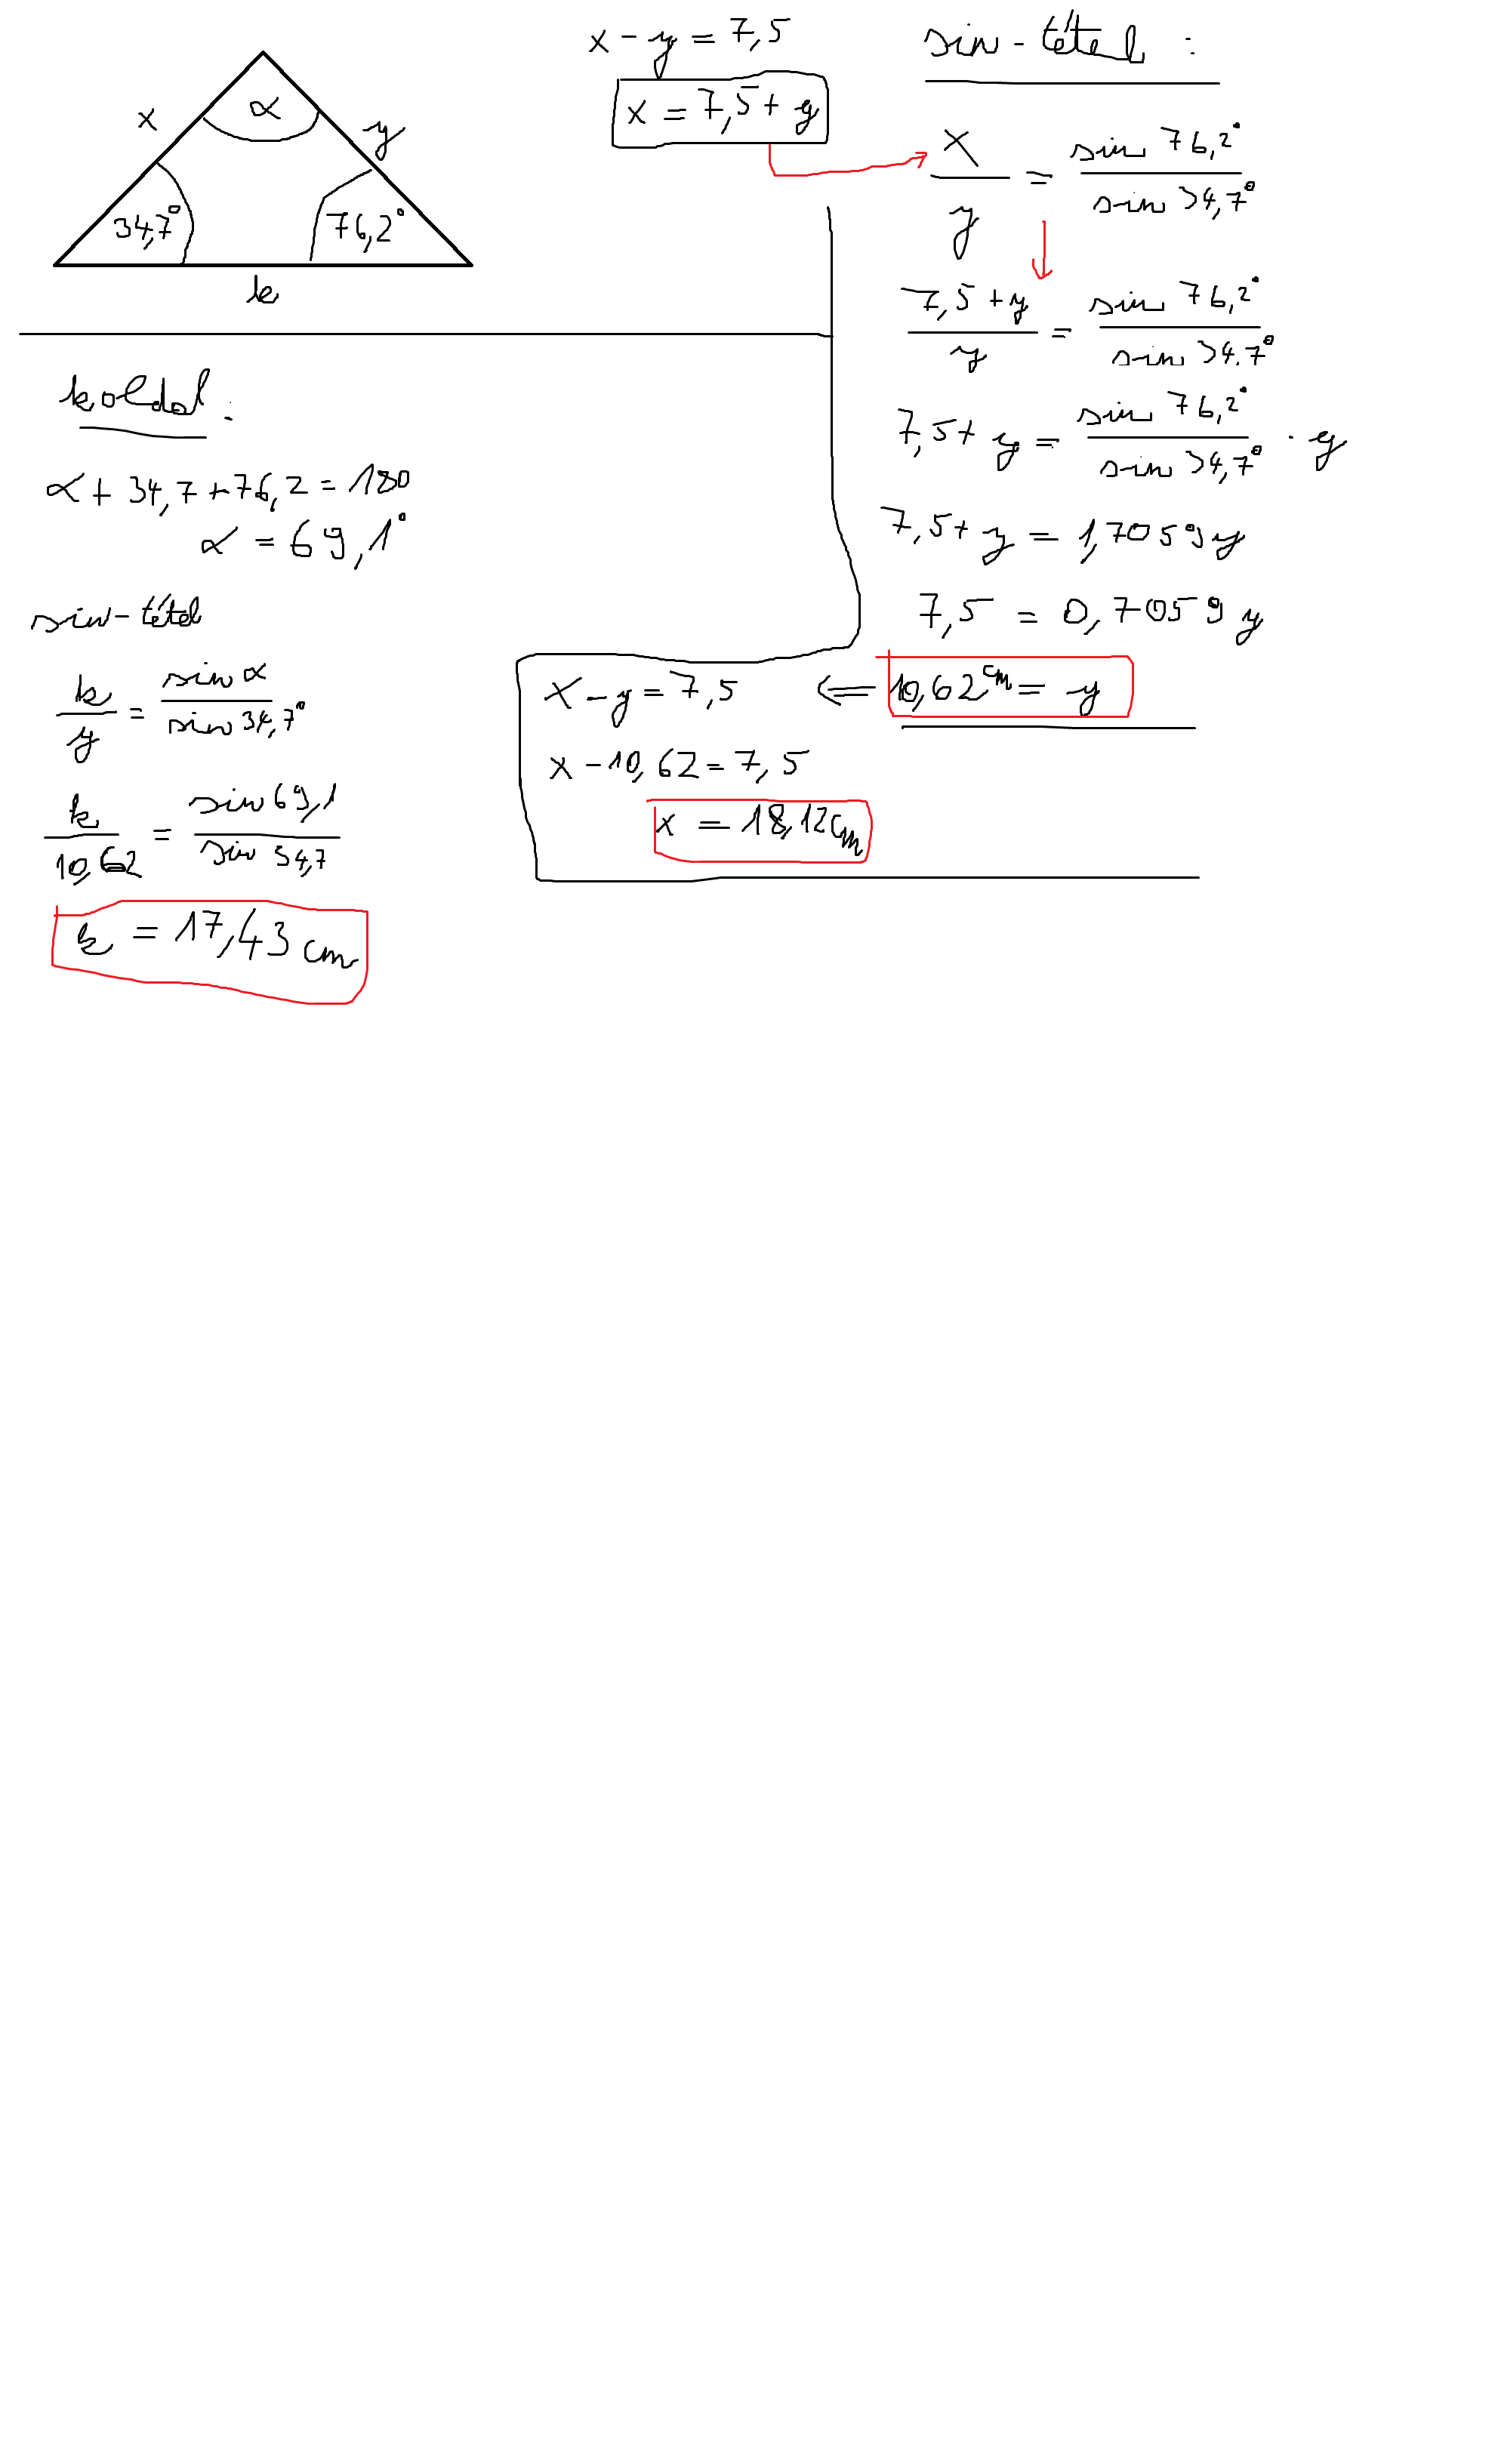 x
α
y
34,7°
76,2°
k
x - y = 7,5
x = 7,5 + y
sin-tétel :
x/y = sin 76,2°/sin 34,7°
7,5+y/y = sin 76,2°/sin 34.7°
7,5+ y = sin 76,2°/sin 34,7° · y
7,5+ y = 1,7059y
7,5 = 0,7059y
10,62cm = y
⇐
x - y = 7,5
x - 10,62 = 7,5
x = 18,12cm
α + 34,7 + 76,2 = 180
α = 69,1°
sin-tétel
k/y = sin α/sin 34,7°
k/10,62 = sin 69,1/sin 34,7
k = 17,43 cm